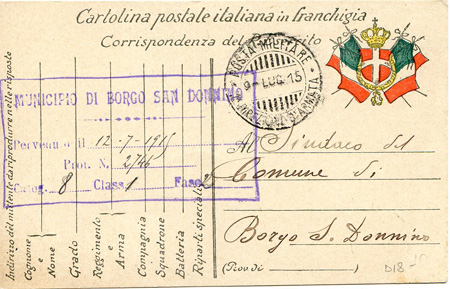 Cartolina postale italiana in franchigia
Corrispondenza del
POSTA MILITARE
9-LUG.15
ARMATA
MUNICIPIO DI BORGO SAN DONNINO
Pervenuto il 12-7-1915
Prot. N. 2746
Categ. 8 Class 1 Fasc 2
Al Sindaco del
Comune di
Borgo S. Donnino
(Prov. di )
D18
Indirizzo del mittente da riprodurre nelle risposte
Cognome e Nome
Grado
Reggimento e Arma
Compagnia
Squadrone
Batteria
Riparti speciali